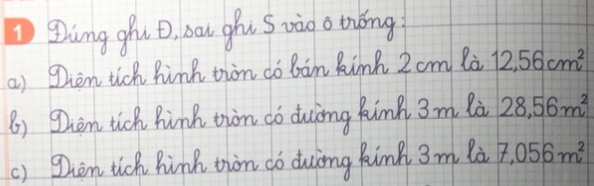 1 Đúng ghi Đ, sai ghi S vào ô trống:
a) Diện tích hình tròn có bán kính 2 cm là 12,56 cm²
b) Diện tích hình tròn có đường kính 3 m là 28,56 m²
c) Diện tích hình tròn có đường kính 3 m là 7,056 m²